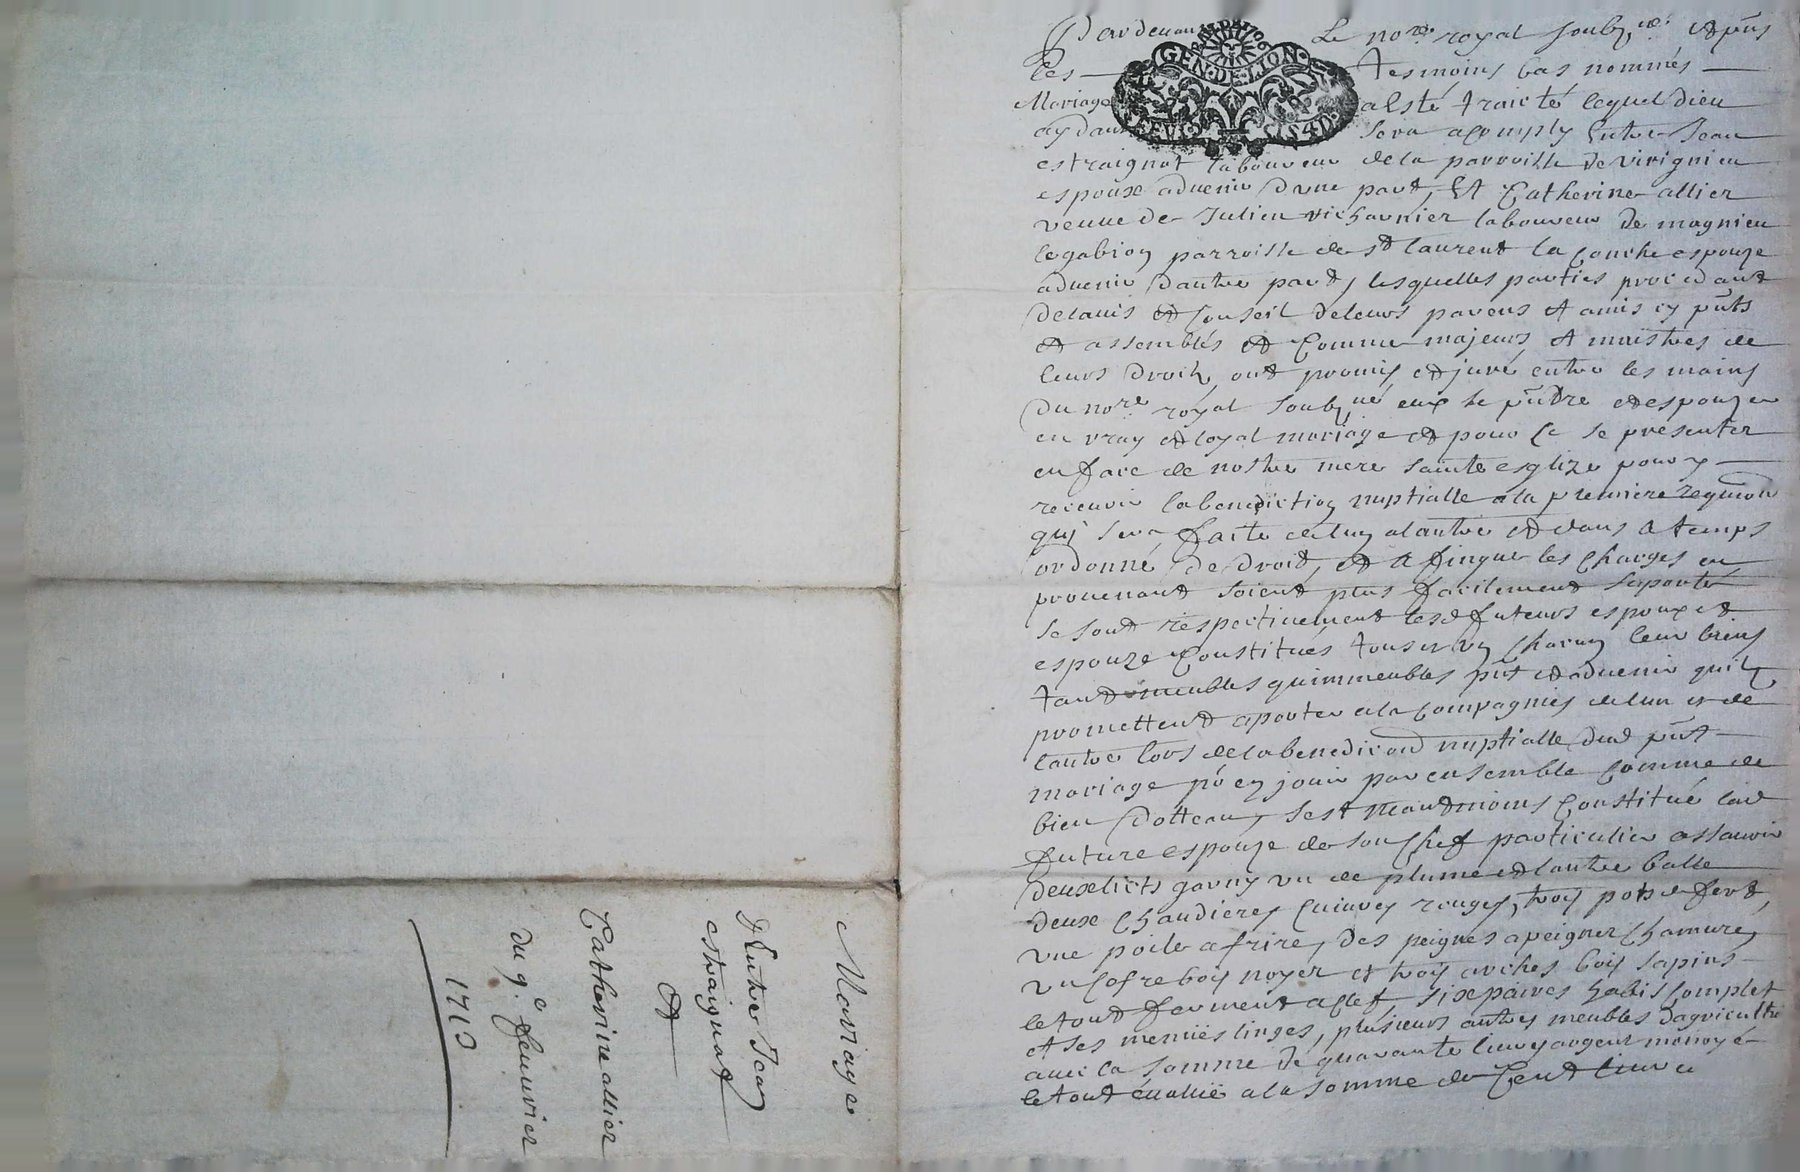 Pardevant Le no.re royal soub.né et pnts
les tesmoins bas nommés
Mariage a esté traicté lequel dieu
GEN·DE·LION·
aydant sera acomply Entre Jean
estraignat laboureur de la parroisse de virignieu
espoux aduenir dune part, Et Catherine allier
veuue de Julien richarnier laboureur de magnieu
le gabion parroisse de st laurent la conche espouze
aduenir dautre part, lesquelles parties procedant
delauis et conseil de leurs parens et amis cy pnts
et assemblés et Comme majeurs et maistres de
leurs droits, ont promis et juré entre les mains
du no.re royal soub.né eux se pndre et espouzer
en vray et loyal mariage et pour ce se presenter
en face de nostre mere sainte esglize pour y
receuoir la benediction nuptialle a la premiere requi.on
qui sera faite de lun a lautre et dans le temps
ordonné de droit, et a fin que les charges en
prouenant soient plus facilement suporté
se sont respectiuement lesd futurs espoux et
espouze Constitués tous et un chacun leur biens
tant meubles quimmeubles pnt et aduenir quils
promettent aporter a la compagnies de lun et de
lautre lors de la benediction nuptialle dud pnt
mariage pr en jouir par ensemble comme de
bien dotteau, sest neantmoins constitué lad
future espouze de son chef particulier assauoir
deux licts garny un de plume et lautre balle
deux chaudieres cuiures rouges, trois pots de fert,
une poile a frire, des peignes a peigner chamure,
un cofre bois noyer et trois arches bois sapins
le tout fermant a clef six paires habis complet
et ses menües linges, plusieurs autres meubles dagricultre
auec la somme de quarante liures argent monoyé
le tout éualüé a la somme de Cent liures
Mariage
D'Entre Jean
estraignat
et
Catherine allier
du 9.e feuurier
1713